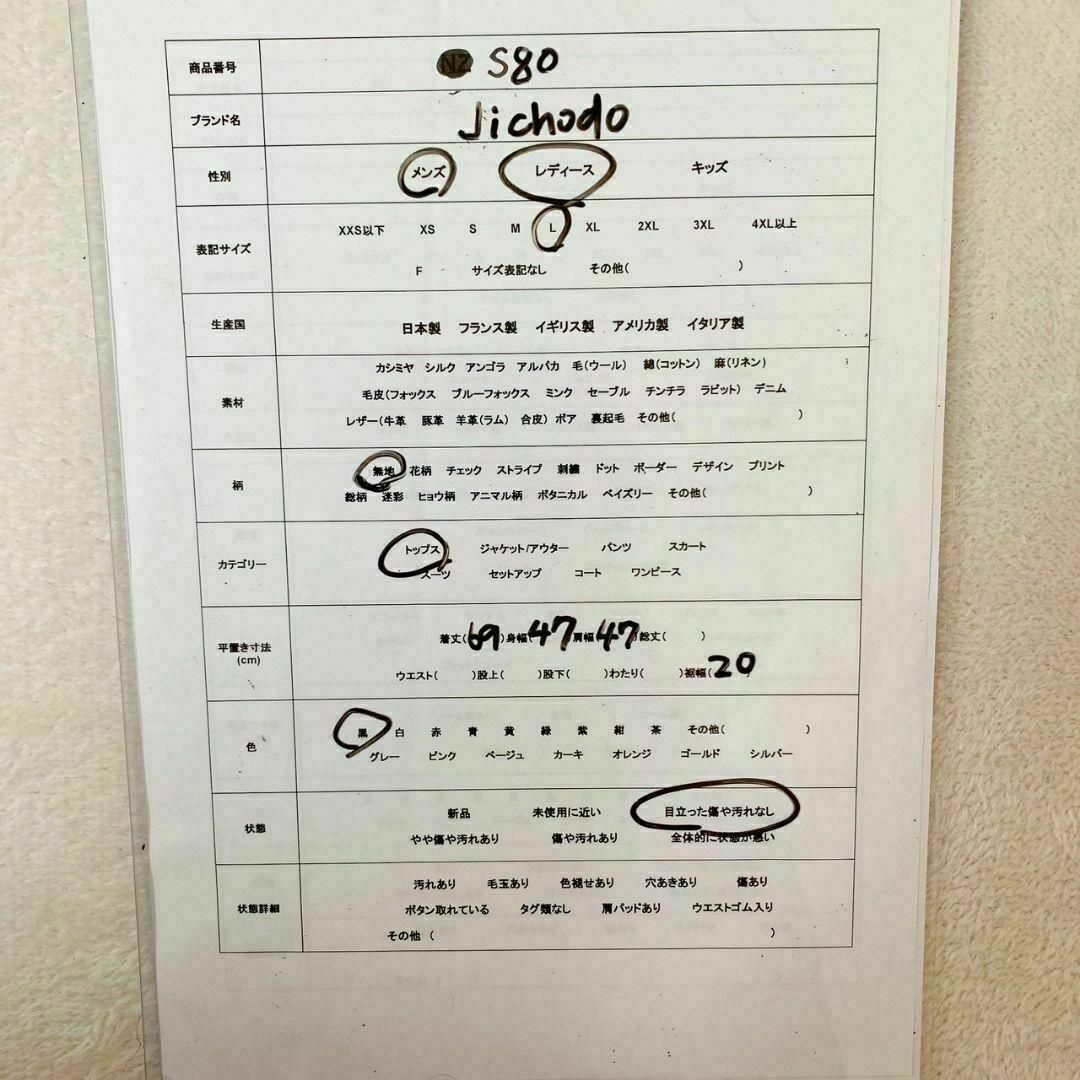 商品番号 NZ S80
ブランド名 Jichodo
性別 メンズ レディース キッズ
XXS以下 XS S M L XL 2XL 3XL 4XL以上
表記サイズ
F サイズ表記なし その他( )
生産国 日本製 フランス製 イギリス製 アメリカ製 イタリア製
カシミヤ シルク アンゴラ アルパカ 毛(ウール) 綿(コットン) 麻(リネン)
素材 毛皮(フォックス ブルーフォックス ミンク セーブル チンチラ ラビット) デニム
レザー(牛革 豚革 羊革(ラム) 合皮) ボア 裏起毛 その他( )
無地 花柄 チェック ストライプ 刺繍 ドット ボーダー デザイン プリント
柄
総柄 迷彩 ヒョウ柄 アニマル柄 ボタニカル ペイズリー その他( )
トップス ジャケット/アウター パンツ スカート
カテゴリー
スーツ セットアップ コート ワンピース
着丈(69)身幅(47)肩幅(47)総丈( )
平置き寸法
(cm)
ウエスト( )股上( )股下( )わたり( )裾幅(20)
黒 白 赤 青 黄 緑 紫 紺 茶 その他( )
色
グレー ピンク ベージュ カーキ オレンジ ゴールド シルバー
新品 未使用に近い 目立った傷や汚れなし
状態
やや傷や汚れあり 傷や汚れあり 全体的に状態が悪い
汚れあり 毛玉あり 色褪せあり 穴あきあり 傷あり
状態詳細 ボタン取れている タグ類なし 肩パッドあり ウエストゴム入り
その他 ( )